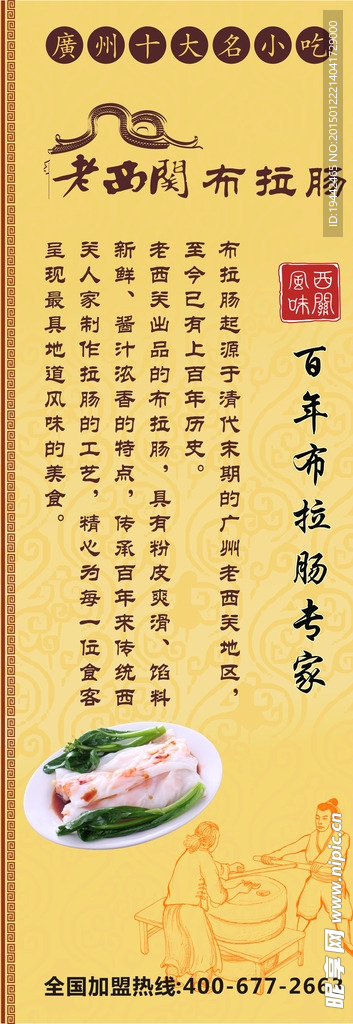 廣州十大名小吃
老西関布拉肠
西關
風味
百年布拉肠专家
布拉肠起源于清代末期的广州老西关地区，
至今已有上百年历史。
老西关出品的布拉肠，具有粉皮爽滑、馅料
新鲜、酱汁浓香的特点，传承百年来传统西
关人家制作拉肠的工艺，精心为每一位食客
呈现最具地道风味的美食。
全国加盟热线:400-677-2663
昵享网 www.nipic.cn
ID:19442465 NO:20150122214041729000